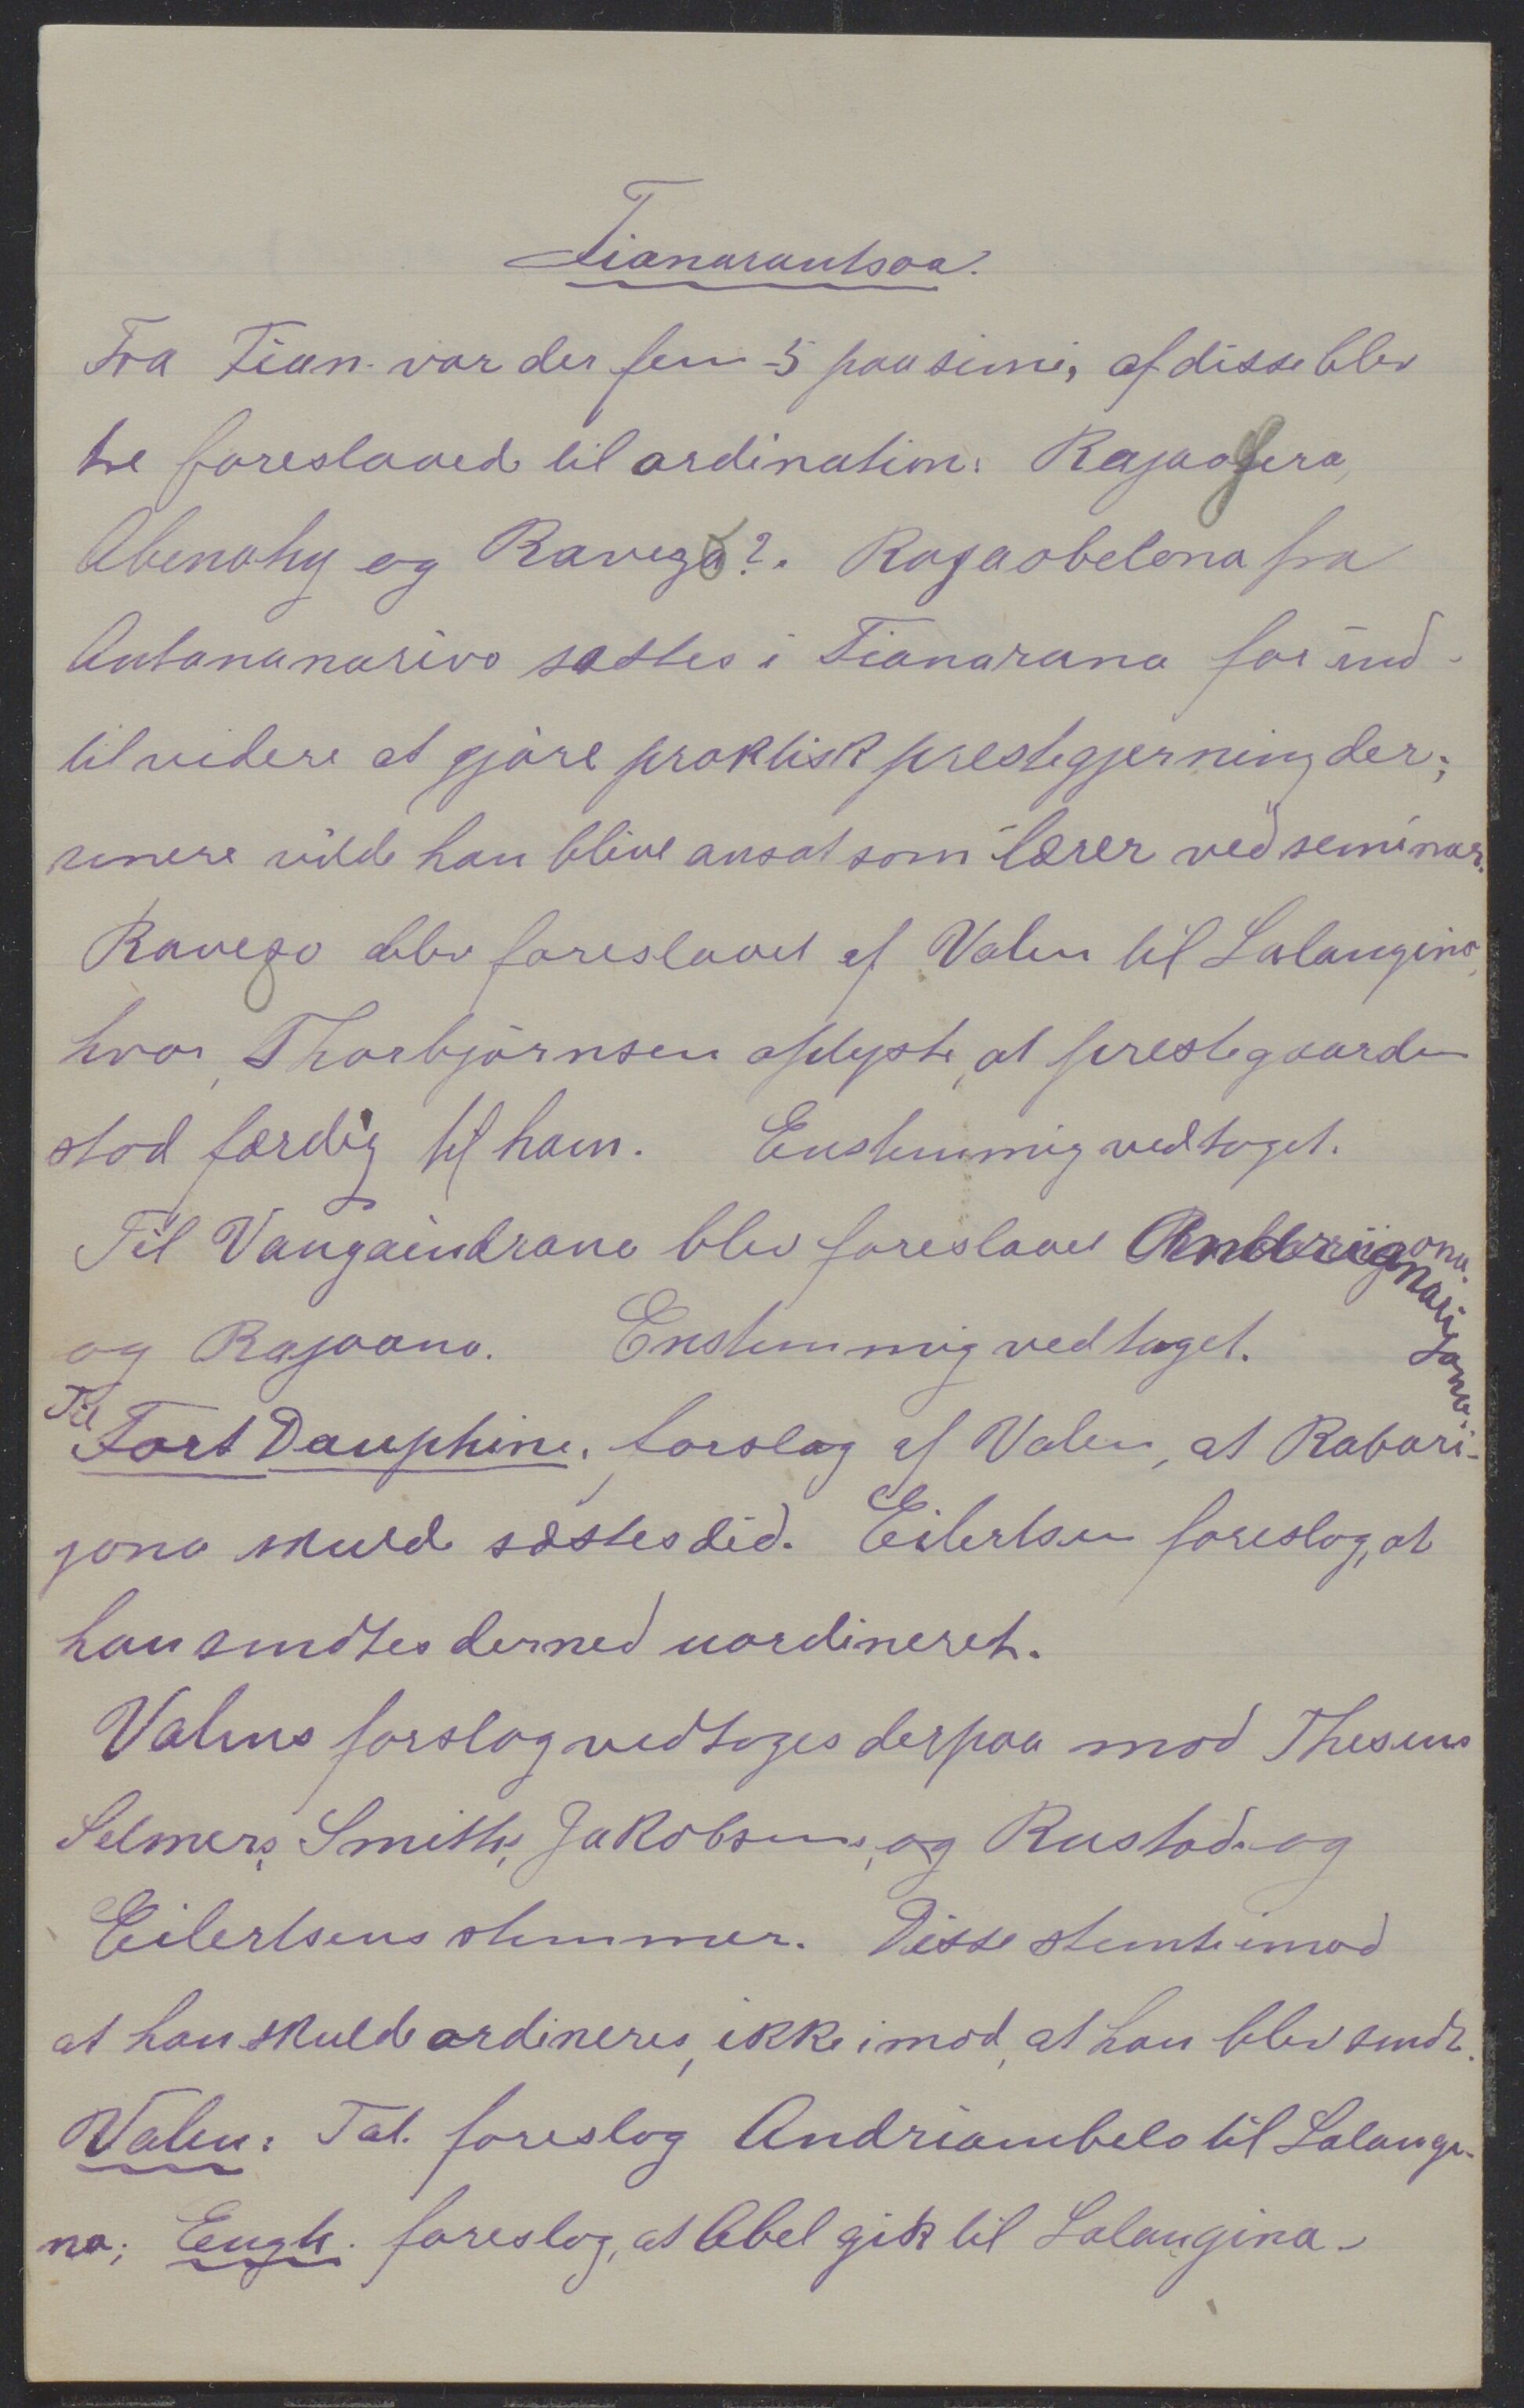 Fianarantsoa.
Fra Fian. var der fem 5 paa semi, af disse blev
tre foreslaaed til ordination: Rajaofera,
Abenahy og Ravego?. Rajaobelona fra
Antananarivo sættes i Fianarana for ind-
til videre at gjøre praktisk prestegjerning der;
senere vilde han blive ansat som lærer ved seminar.
Ravego blev foreslaaet af Valen til Lalangina,
hvor, Thorbjørnsen oplyste, at prestegaarden
stod færdig til ham. Enstemmig vedtaget.
Til Vangaindrano blev foreslaaet Andrianarijaona.
og Rajaona. Enstemmig vedtaget.
Til Fort Dauphine. forslag af Valen, at Rabari-
jona skulde sættes did. Eilertsen foreslog, at
han sendtes derned uordineret.
Valens forslag vedtoges derpaa mod Thesens
Selmers, Smiths, Jakobsens, og Rustads og
Eilertsens stemmer. Disse stemte imod
at han skulde ordineres, ikke imod, at han blev sendt.
Valen: Tal. foreslog Andriambelo til Lalangi-
na; Eugh. foreslog, at Abel gik til Lalangina.